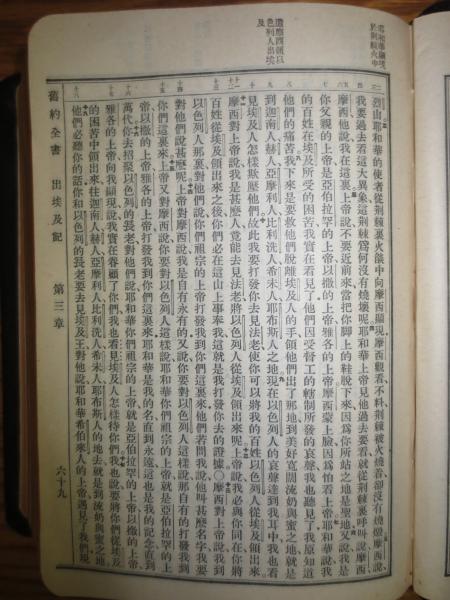 耶和華顯現
於荆棘火中
遣摩西領以
色列人出埃
及
烈山耶和華的使者從荆棘裏火燄中向摩西顯現摩西觀看不料荆棘被火燒着卻沒有燒燬摩西說
我要過去看這大異象這荆棘爲何沒有燒壞呢耶和華上帝見他過去要看就從荆棘裏呼叫說摩西
摩西他說我在這裏上帝說不要近前來當把你腳上的鞋脫下來因爲你所站之地是聖地又說我是
你父親的上帝是亞伯拉罕的上帝以撒的上帝雅各的上帝摩西蒙上臉因爲怕看上帝耶和華說我
的百姓在埃及所受的困苦我實在看見了他們因受督工的轄制所發的哀聲我也聽見了我原知道
他們的痛苦我下來是要救他們脫離埃及人的手領他們出了那地到美好寬闊流奶與蜜之地就是
到迦南人赫人亞摩利人比利洗人希未人耶布斯人之地現在以色列人的哀聲達到我耳中我也看
見埃及人怎樣欺壓他們故此我要打發你去見法老使你可以將我的百姓以色列人從埃及領出來
摩西對上帝說我是甚麼人竟能去見法老將以色列人從埃及領出來呢上帝說我必與你同在你將
百姓從埃及領出來之後你們必在這山上事奉我這就是我打發你去的證據○摩西對上帝說我到
以色列人那裏對他們說你們祖宗的上帝打發我到你們這裏來他們若問我說他叫甚麼名字我要
對他們說甚麼呢上帝對摩西說我是自有永有的又說你要對以色列人這樣說那自有的打發我到
你們這裏來上帝又對摩西說你要對以色列人這樣說耶和華你們祖宗的上帝就是亞伯拉罕的上
帝以撒的上帝雅各的上帝打發我到你們這裏來耶和華是我的名直到永遠這也是我的記念直到
萬代你去招聚以色列的長老對他們說耶和華你們祖宗的上帝就是亞伯拉罕的上帝以撒的上帝
雅各的上帝向我顯現說我實在眷顧了你們我也看見埃及人怎樣待你們我也說要將你們從埃及
的困苦中領出來往迦南人赫人亞摩利人比利洗人希未人耶布斯人的地去就是到流奶與蜜之地
他們必聽你的話你和以色列的長老要去見埃及王對他說耶和華希伯來人的上帝遇見了我們現
舊約全書　出埃及記　第三章　六十九